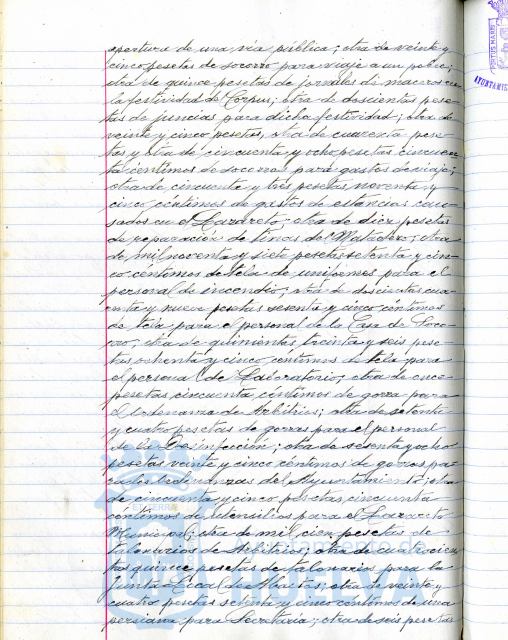 apertura de una vía pública; otra de veinte y
cinco pesetas de socorro para viaje a un pobre;
otra de quince pesetas de jornales de maceros en
la festividad del Corpus; otra de doscientas pese-
tas de juncias para dicha festividad; otra de
veinte y cinco pesetas, otra de cuarenta pese-
tas y otra de cincuenta y ocho pesetas cincuen-
ta centimos de socorros para gastos de viaje;
otra de cincuenta y tres pesetas noventa y
cinco céntimos de gastos de estancias cau-
sados en el Lazareto; otra de diez pesetas
de reparación de tinas del Matadero; otra
de mil noventa y siete pesetas setenta y cin-
co céntimos de tela de uniformes para el
personal de incendio; otra de doscientas cua-
renta y nueve pesetas sesenta y cinco céntimos
de tela para el personal de la Casa de Soco-
rro; otra de quinientas treinta y seis pese-
tas ochenta y cinco centimos de tela para
el personal de Laboratorio; otra de once
pesetas cincuenta céntimos de gorra para
el Ordenanza de Arbitrios; otra de setenta
y cuatro pesetas de gorras para el personal
de la Desinfección; otra de sesenta y ocho
pesetas veinte y cinco céntimos de gorros pa-
ra los ordenanzas del Ayuntamiento; otra
de cincuenta y cinco pesetas cincuenta
céntimos de utensilios para el Lazareto
Municipal; otra de mil cien pesetas de
talonarios de Arbitrios; otra de cuatrocien-
tas quince pesetas de talonarios para la
Junta Local de ; otra de veinte y
cuatro pesetas setenta y cinco céntimos de una
persiana para Secretaria; otra de seis pesetas
PORTUS MARIS
AYUNTAMIE
Ayuntamiento de
HUELVA